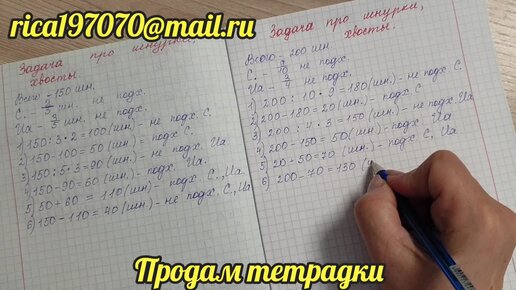 rica197070@mail.ru
Задача про шнурки,
хвосты
Всего - 150 шн.
С. - 2/3 шн. не подх.
Иа - 3/5 шн. не подх.
1) 150 : 3 · 2 = 100 (шн.) - не подх. С.
2) 150 - 100 = 50 (шн.) - подх. С.
3) 150 : 5 · 3 = 90 (шн.) - не подх. Иа.
4) 150 - 90 = 60 (шн.) - подх. Иа.
5) 50 + 60 = 110 (шн.) - подх. С., Иа
6) 150 - 110 = 40 (шн.) - не подх. С., Иа.
Задача про шнурки,
хвосты.
Всего - 200 шн
С. - 9/10 не подх.
Иа - 3/4 не подх.
1) 200 : 10 · 9 = 180 (шн.) - не подх. С.
2) 200 - 180 = 20 (шн.) - подх. С
3) 200 : 4 · 3 = 150 (шн.) - не подх. Иа
4) 200 - 150 = 50 (шн) - подх. Иа
5) 20 + 50 = 70 (шн.) - подх. С, Иа.
6) 200 - 70 = 130
Продам тетрадки